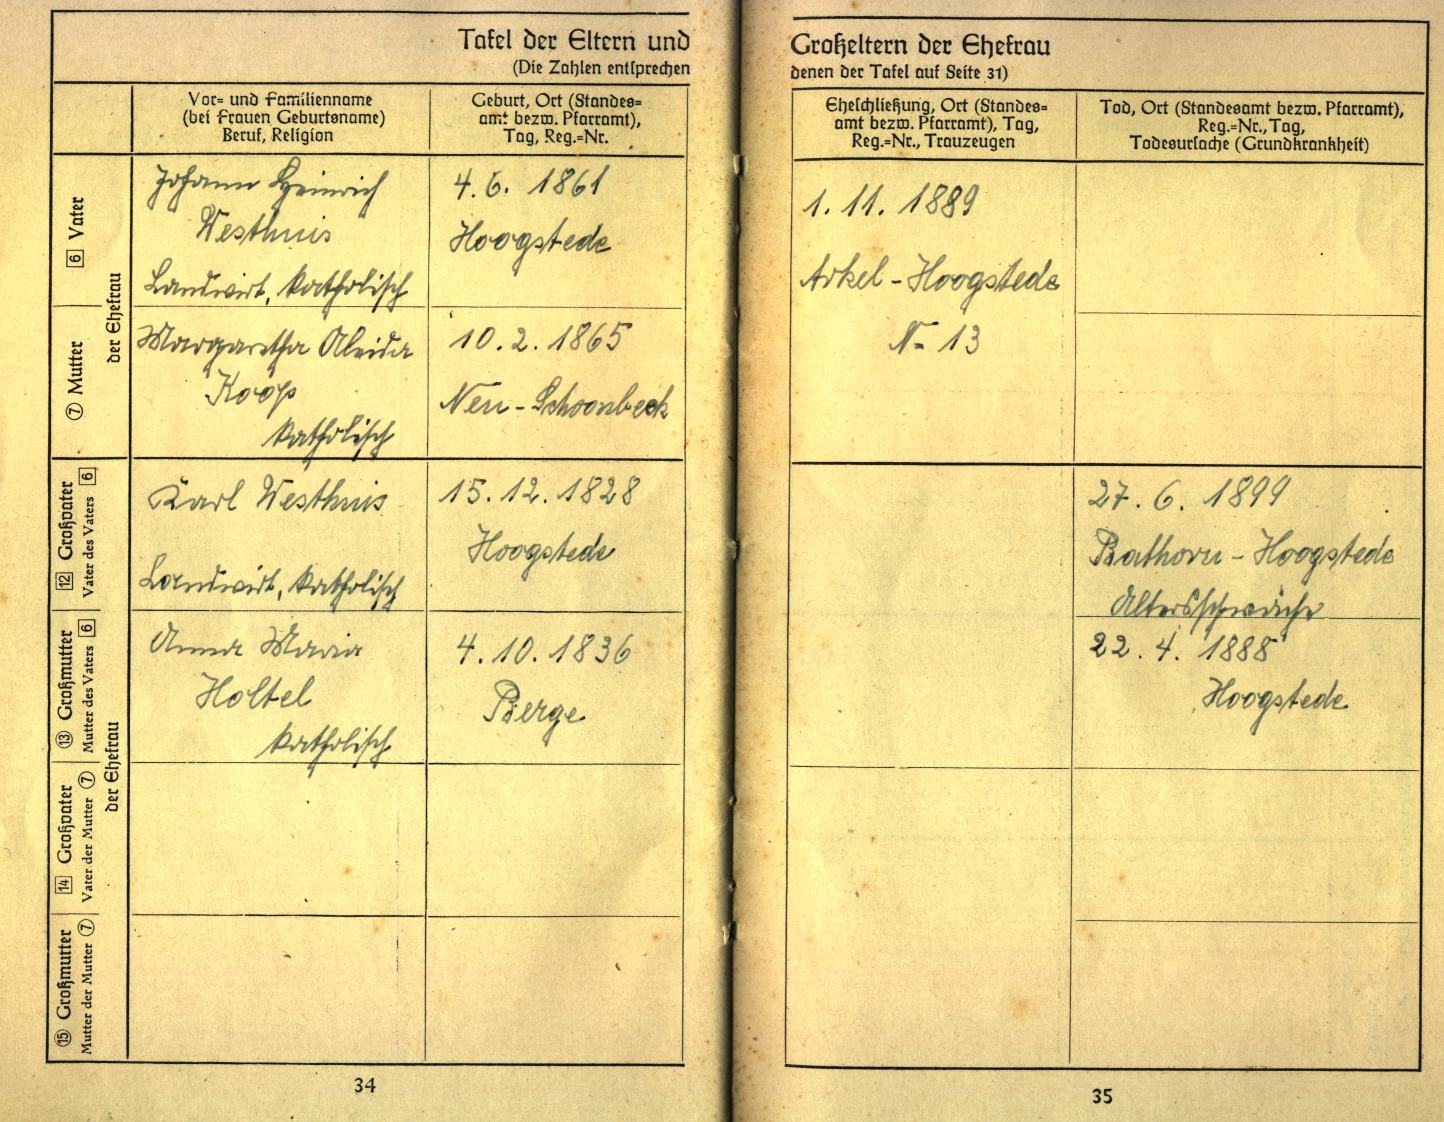 Tafel der Eltern und Großeltern der Ehefrau
(Die Zahlen entsprechen denen der Tafel auf Seite 31)
Vor- und Familienname
(bei Frauen Geburtsname)
Beruf, Religion
Geburt, Ort (Standes-
amt bezw. Pfarramt),
Tag, Reg.-Nr.
Eheschließung, Ort (Standes-
amt bezw. Pfarramt), Tag,
Reg.-Nr., Trauzeugen
Tod, Ort (Standesamt bezw. Pfarramt),
Reg.-Nr., Tag,
Todesursache (Grundkrankheit)
der Ehefrau
6 Vater
Johann Heinrich
Westhuis
Landwirt, katholisch
4. 6. 1861
Hoogstede
1. 11. 1889
Arkel - Hoogstede
N= 13
7 Mutter
Margaretha Aleida
Koop
katholisch
10. 2. 1865
Neu - Schoonbeck
der Ehefrau
12 Großvater
Vater des Vaters 6
Karl Westhuis
Landwirt, katholisch
15. 12. 1828
Hoogstede
27. 6. 1899
Bathorn - Hoogstede
Altersschwäche
13 Großmutter
Mutter des Vaters 6
Anna Maria
Holtel
katholisch
4. 10. 1836
Berge
22. 4. 1888
Hoogstede
14 Großvater
Vater der Mutter 7
15 Großmutter
Mutter der Mutter 7
34
35